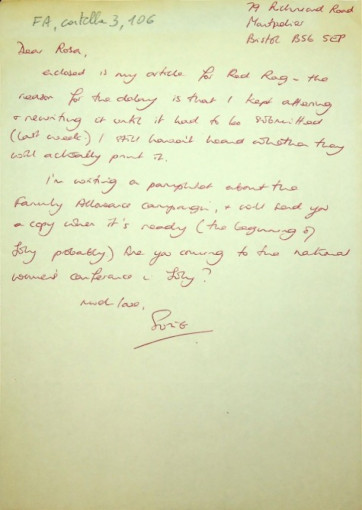 FA, cartella 3, 106
79 Richmond Road
Montpelier
Bristol BS6 5EP
Dear Rosa,
enclosed is my article for Red Rag – the
reason for the delay is that I kept altering
+ rewriting it until it had to be submitted
(last week) I still haven't heard whether they
will actually print it.
I'm writing a pamphlet about the
Family Allowance campaign, + will send you
a copy when it's ready (the beginning of
July probably) Are you coming to the national
women's conference in July?
much love,